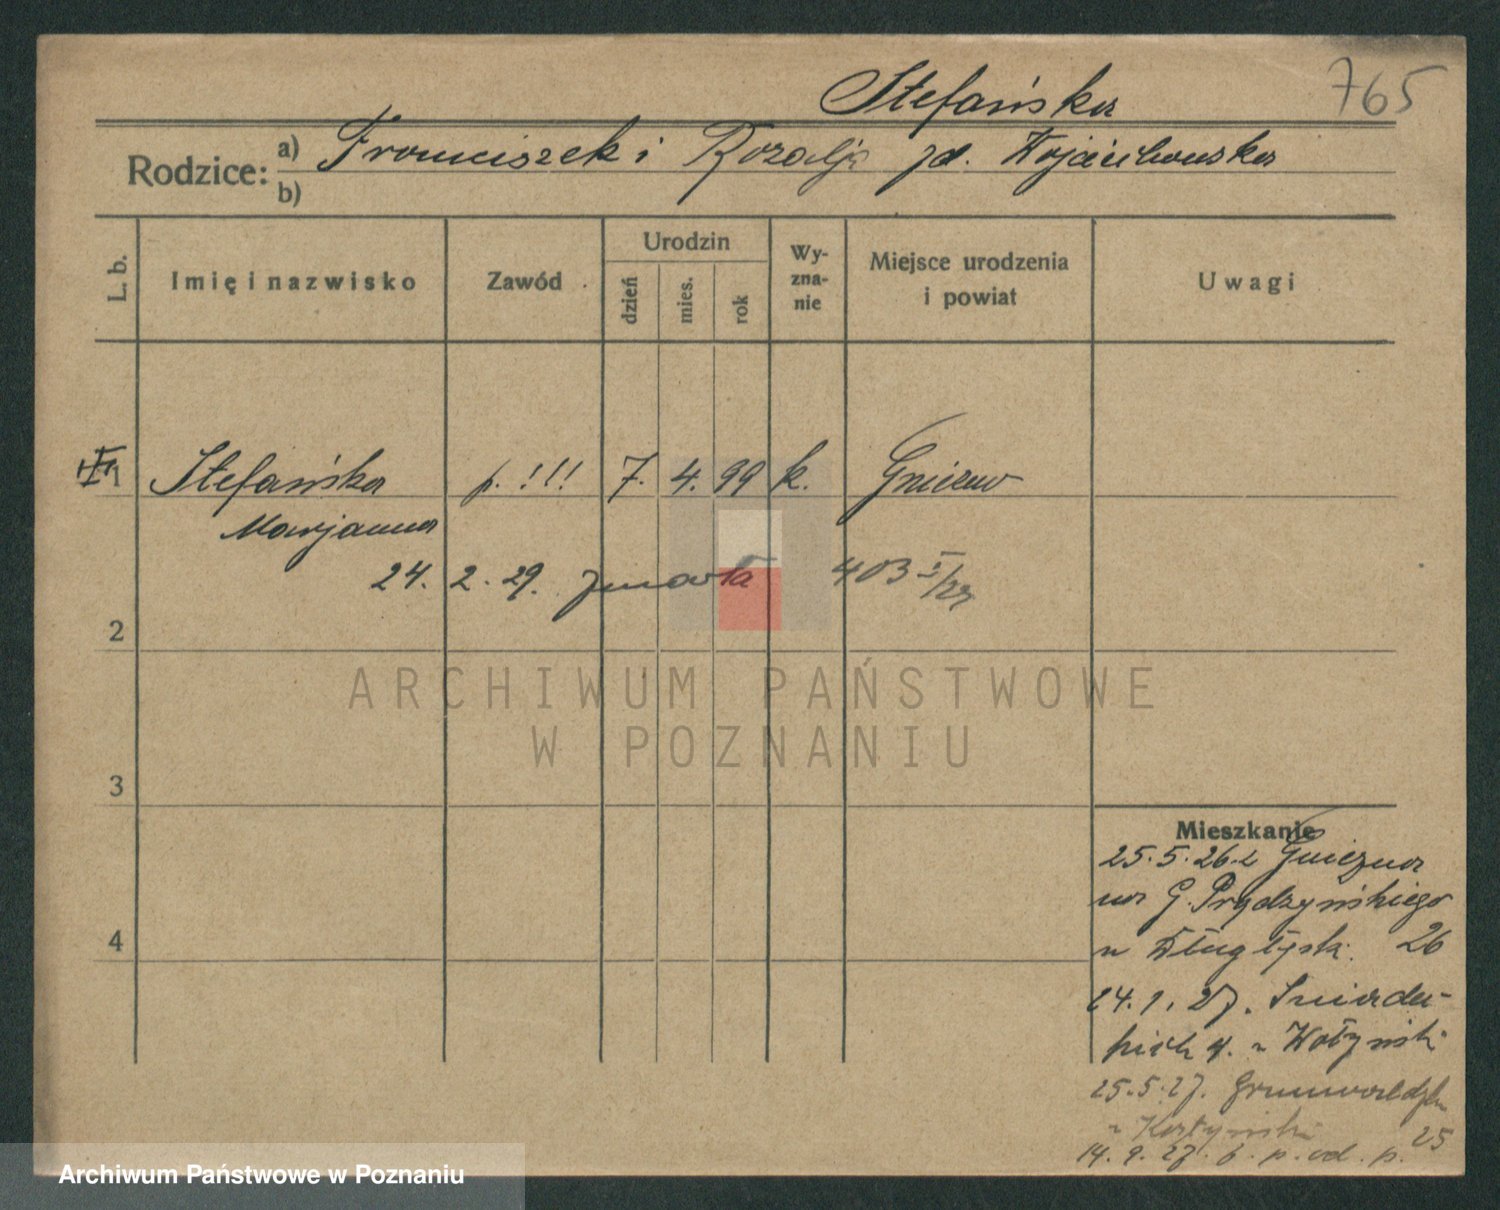 Stefańska
765
Rodzice: a) Franciszek i Rozalja zd. Wojciechowska
b)
L. b.
Imię i nazwisko
Zawód
Urodzin
dzień
mies.
rok
Wy-
zna-
nie
Miejsce urodzenia
i powiat
Uwagi
Stefańska p. !!! 7. 4. 99 k. Gniezno
Marjanna
24. 2. 29. zmarła 403 I/29
2
ARCHIWUM PAŃSTWOWE
W POZNANIU
3
Mieszkanie
25.5.26 z Gniezna
na G. Prądzyńskiego
26
4
14.1.27. Śniadec-
kich 4. u Wołyński
25.5.27. Grunwaldzka
25
14.9.27.
Archiwum Państwowe w Poznaniu